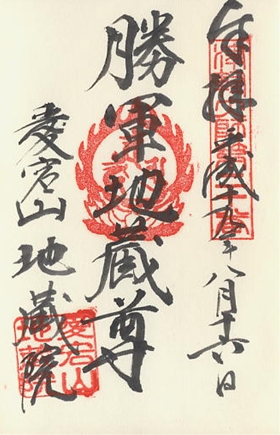 奉拝 平成十九年八月十六日
勝軍地蔵尊
愛宕山 地蔵院
愛宕山
地蔵院